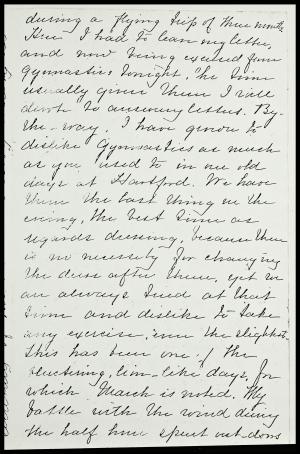 during a flying trip of three months
Here I had to leave my letter,
and now being excused from
Gymnastics tonight, the time
usually given them I will
devote to answering letters. By-
the-way, I have grown to
dislike Gymnastics as much
as you used to in our old
days at Hartford. We have
them the last thing in the
evening, the best time as
regards dressing, because there
is no necessity for changing
the dress after them, yet we
are always tired at that
time and dislike to take
any exercise, even the slightest.
This has been one of the
blustering, lion-like days, for
which March is noted. My
battle with the wind during
the half hour spent out-doors